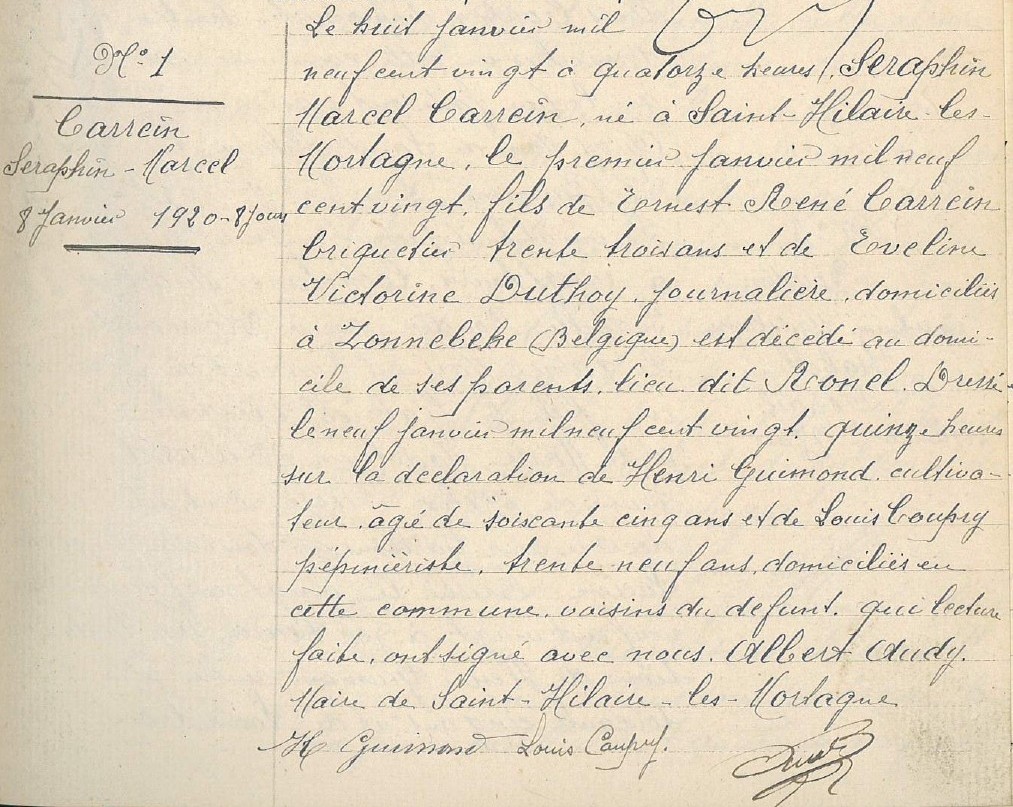 N° 1
Carrein
Seraphin - Marcel
8 Janvier 1920 - 8 jours
Le huit janvier mil
neuf cent vingt à quatorze heures, Seraphin
Marcel Carrein, né à Saint-Hilaire-les-
Mortagne, le premier janvier mil neuf
cent vingt, fils de Ernest René Carrein
briquetier trente trois ans et de Eveline
Victorine Duthoy, journalière, domiciliés
à Zonnebeke (Belgique) est décédé au domi-
cile de ses parents, lieu dit Ronel. Dressé
le neuf janvier mil neuf cent vingt, quinze heures
sur la declaration de Henri Guimond, cultiva-
teur, âgé de soixante cinq ans et de Louis Coupry
pépiniériste, trente neuf ans, domiciliés en
cette commune, voisins du defunt, qui lecture
faite, ont signé avec nous. Albert Audy.
Maire de Saint-Hilaire-les-Mortagne
H Guimond Louis Coupry.